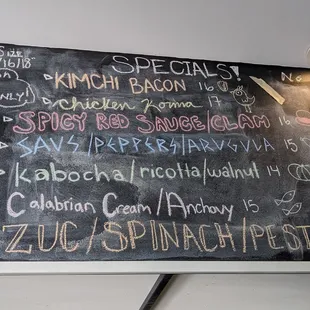 SPECIALS!
Size
/16/18
ONLY!
KIMCHI BACON 16
No
Chicken Korma 17
SPICY RED SAUCE CLAM 16
SAUS/PEPPERS/ARUGULA 15
Kabocha/ricotta/walnut 14
Calabrian Cream/Anchovy 15
ZUC/SPINACH/PEST